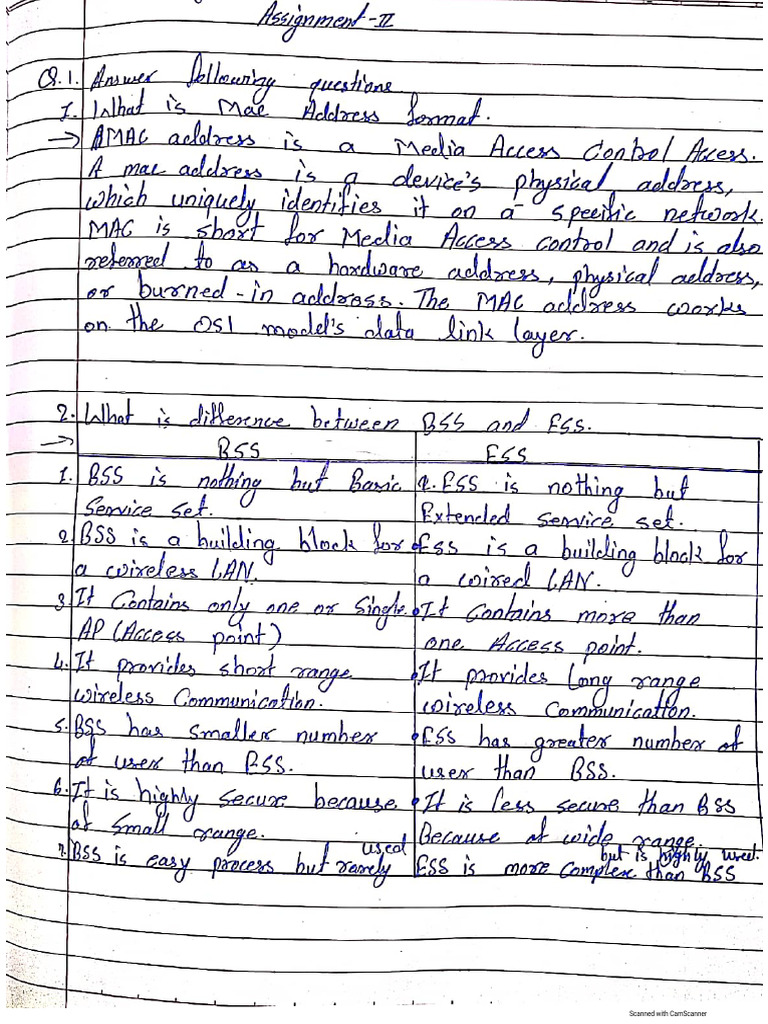 Assignment-II
Q.1. Answer following questions
1. What is Mac Address format.
→ A MAC address is a Media Access Control Access.
A mac address is a device's physical address,
which uniquely identifies it on a specific network.
MAC is short for Media Access control and is also
referred to as a hardware address, physical address,
or burned-in address. The MAC address works
on the OSI model's data link layer.
2. What is difference between BSS and ESS.
→ BSS ESS
1. BSS is nothing but Basic 1. ESS is nothing but
Service set. Extended service set.
2. BSS is a building block for • ESS is a building block for
a wireless LAN. a wired LAN.
3. It Contains only one or Single • It Contains more than
AP (Access point) one Access point.
4. It provides short range • It provides Long range
wireless Communication. wireless Communication.
5. BSS has smaller number • ESS has greater number of
of user than ESS. user than BSS.
6. It is highly secure because • It is less secure than BSS
of small range. Because of wide range.
7. BSS is easy process but rarely used ESS is more Complex than BSS but is highly used.
Scanned with CamScanner